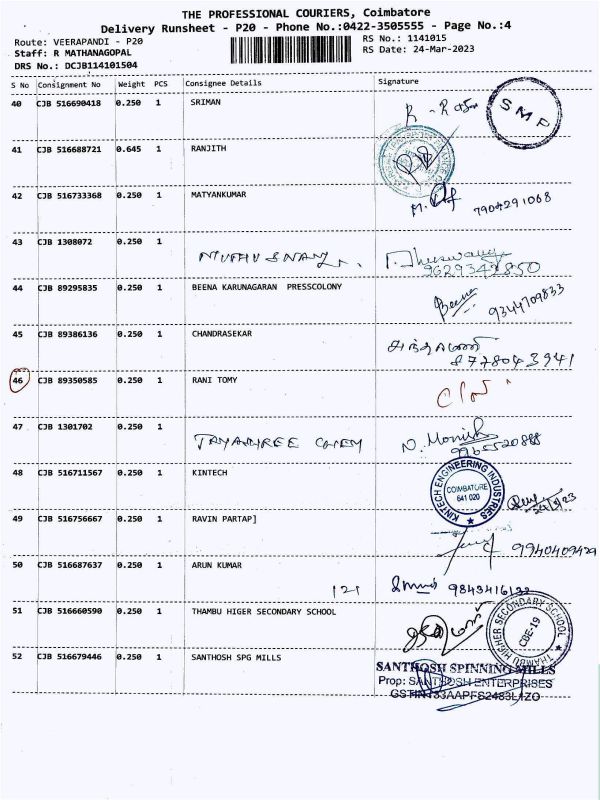 THE PROFESSIONAL COURIERS, Coimbatore
Delivery Runsheet - P20 - Phone No.:0422-3505555 - Page No.:4
Route: VEERAPANDI - P20
RS No.: 1141015
Staff: R MATHANAGOPAL
RS Date: 24-Mar-2023
DRS No.: DCJB114101504
S No Consignment No Weight PCS Consignee Details Signature
40 CJB 516690418 0.250 1 SRIMAN
SMP
41 CJB 516688721 0.645 1 RANJITH
42 CJB 516733368 0.250 1 MATYANKUMAR
7904291068
43 CJB 1308072 0.250 1
9629349850
44 CJB 89295835 0.250 1 BEENA KARUNAGARAN PRESSCOLONY
Beena 9344709833
45 CJB 89386136 0.250 1 CHANDRASEKAR
8778043941
46 CJB 89350585 0.250 1 RANI TOMY
47 CJB 1301702 0.250 1
JAYASHREE CHEM N. Monish
9965520888
48 CJB 516711567 0.250 1 KINTECH
KINTECH ENGINEERING INDUSTRIES
COIMBATORE
641 020
49 CJB 516756667 0.250 1 RAVIN PARTAP]
9940409429
50 CJB 516687637 0.250 1 ARUN KUMAR
121
51 CJB 516660590 0.250 1 THAMBU HIGER SECONDARY SCHOOL
THAMBU HIGHER SECONDARY SCHOOL
CBE-19
52 CJB 516679446 0.250 1 SANTHOSH SPG MILLS
SANTHOSH SPINNING MILLS
Prop: SANTHOSH ENTERPRISES